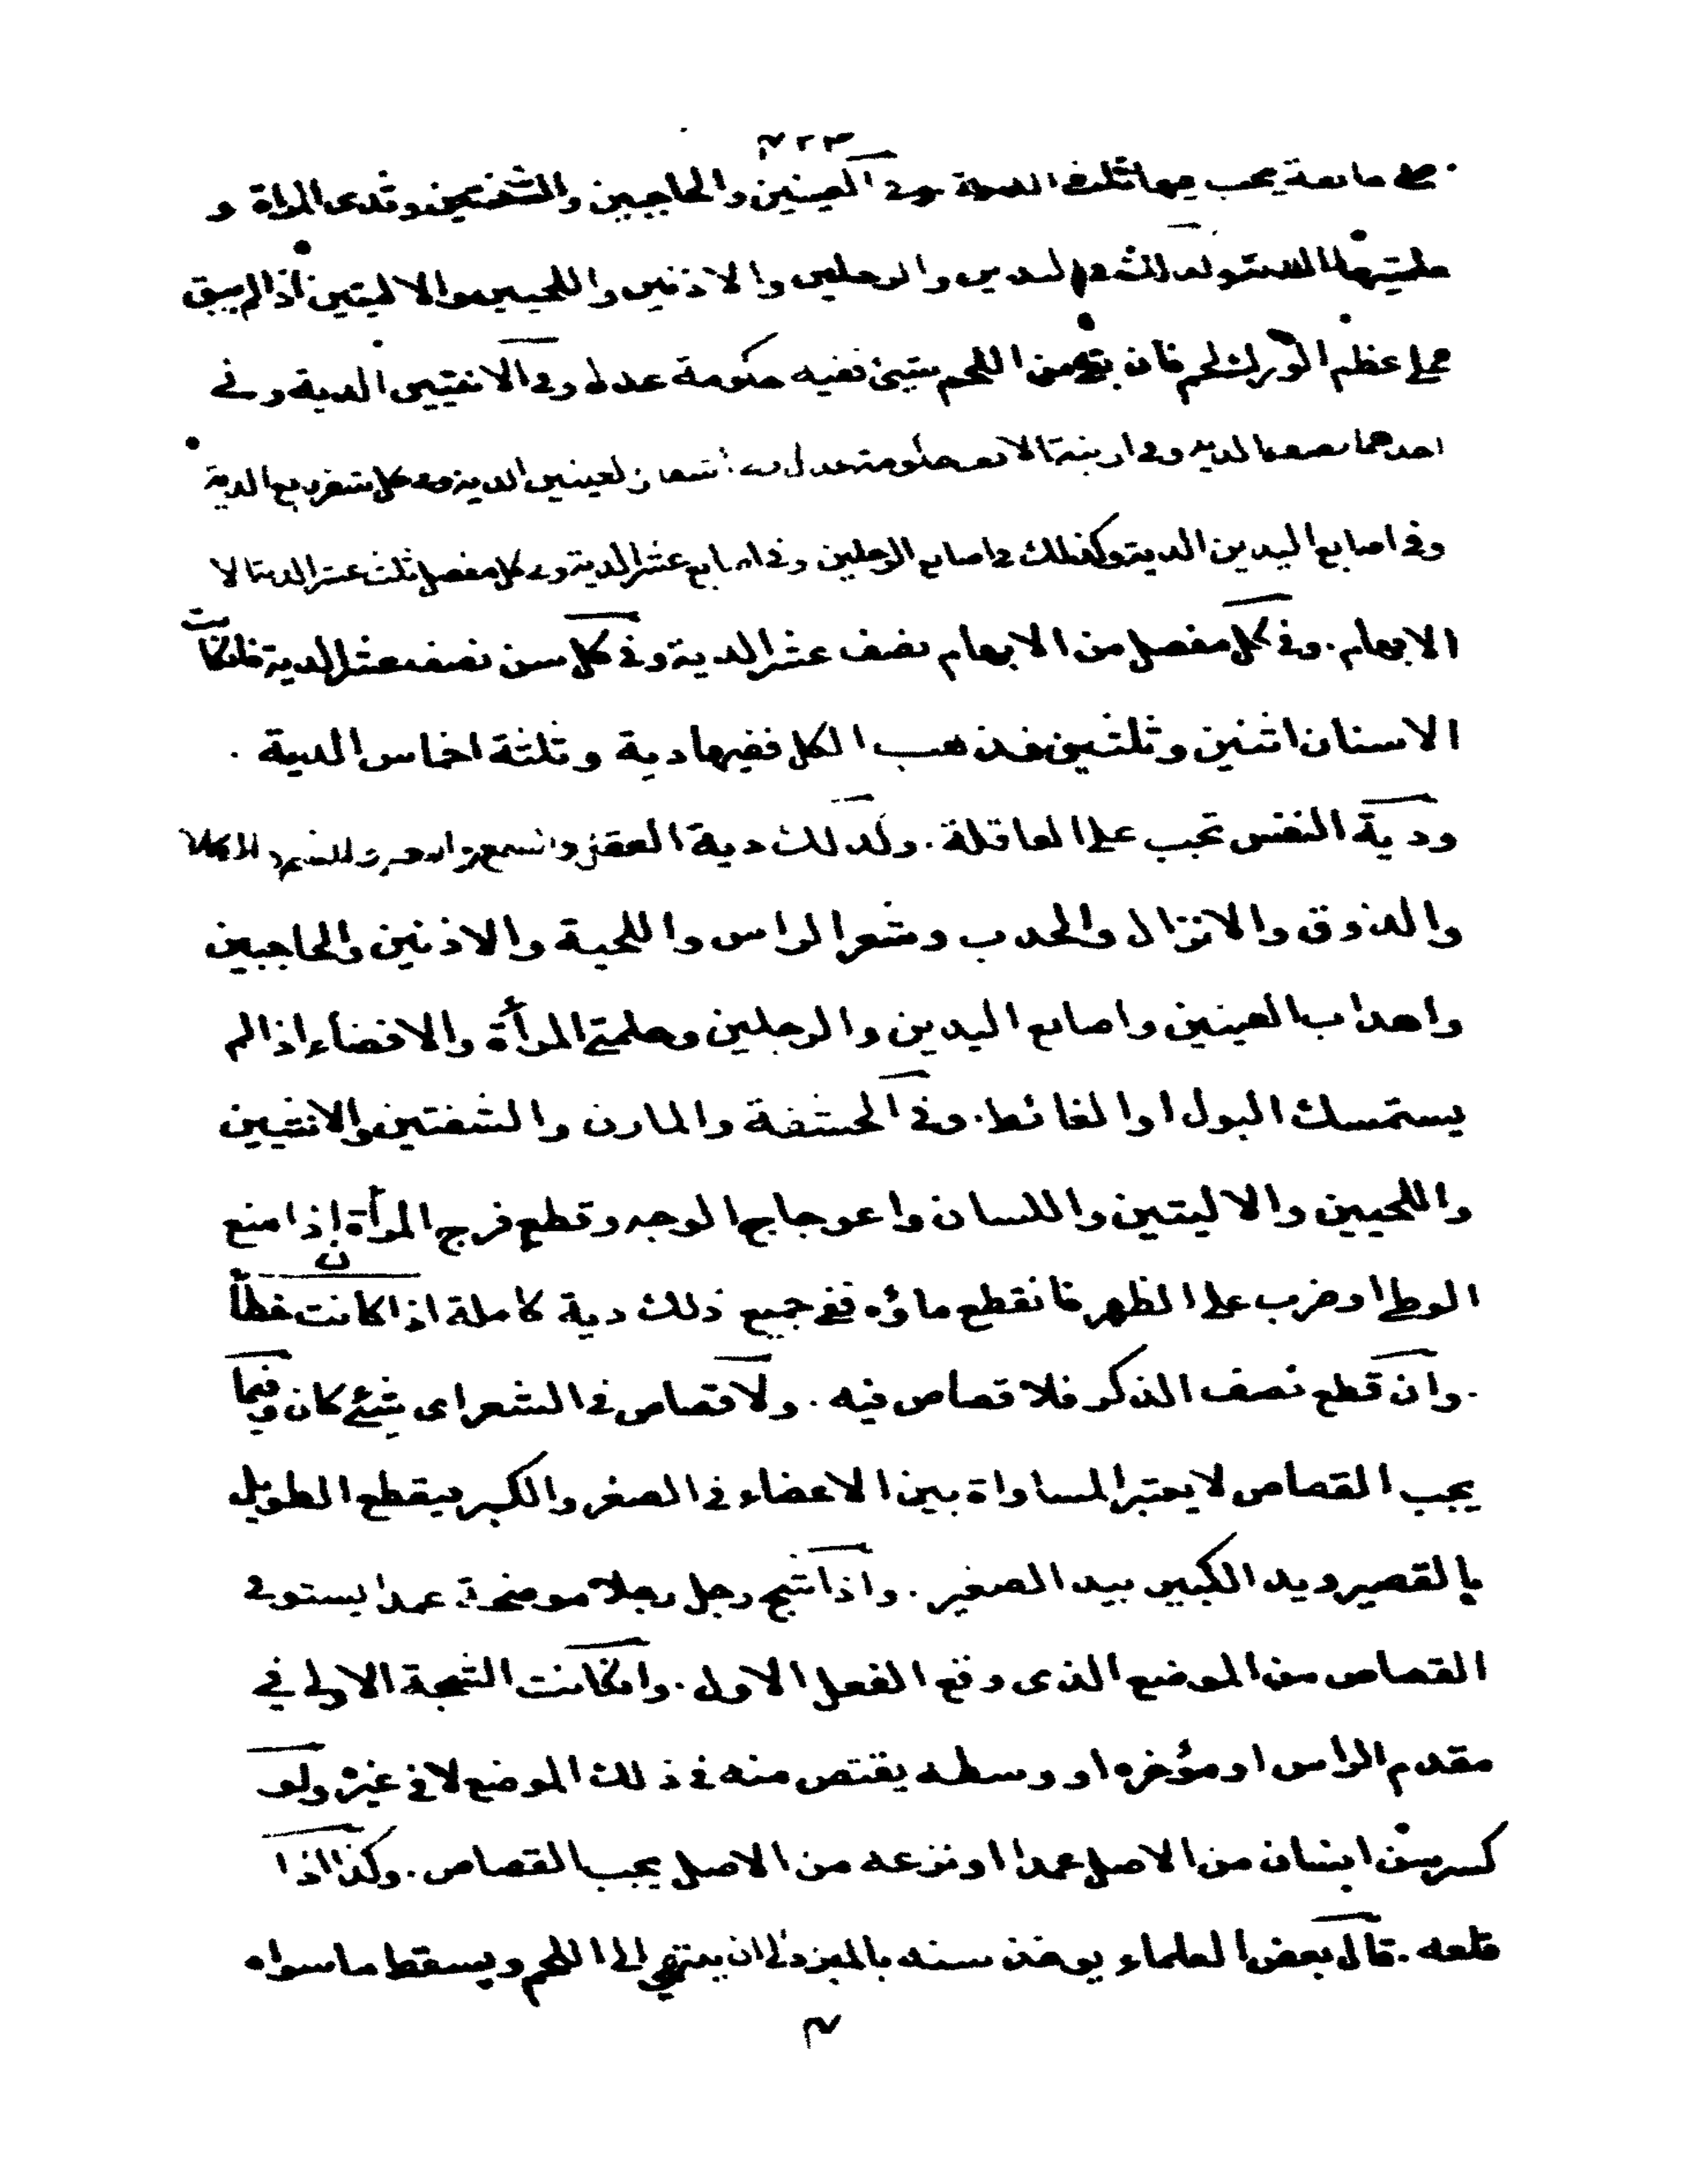 يجب فيها ثلث الدية وفى العينين والحاجبين والشفتين وثدى المراة و
حلمتيها الدية واليدين والرجلين والاذنين واللحيين والاليتين اذا لم يبق
على عظم الورك لحم فان بقى من اللحم شيئ ففيه حكومة عدل وفى الانثيين الدية وفى
احدهما نصف الدية وفى ارنبة الانف حكومة عدل العينين الدية وفى كل شفر ربع الدية
وفى اصابع اليدين الدية وكذلك اصابع الرجلين وفى اصابع عشر الدية وفى كل مفصل ثلث عشر الدية الا
الابهام. وفى كل مفصل من الابهام نصف عشر الدية وفى كل سن نصف عشر الدية فلو كانت
الاسنان اثنين وثلثين فذهب الكل ففيها دية وثلثة اخماس الدية .
ودية النفس تجب على العاقلة. وكذلك دية العقل والسمع والبصر والشم
والذوق والانزال والحدب وشعر الراس واللحية والاذنين والحاجبين
واهداب العينين واصابع اليدين والرجلين وحلمتى المرأة والافضاء اذا لم
يستمسك البول او الغائط. وفى الحشفة والمارن والشفتين والانثيين
واللحيين والاليتين واللسان واعوجاج الوجه وقطع فرج المرأة اذا منع
الوطى او ضرب على الظهر فانقطع ماؤه ففى جميع ذلك دية كاملة اذا كانت خطأ
. وان قطع نصف الذكر فلا قصاص فيه . ولا قصاص فى الشعر اى شيئ كان وفيما
يجب القصاص لا يعتبر المساواة بين الاعضاء فى الصغر والكبر فيقطع الطويل
بالقصير ويد الكبير بيد الصغير . واذا شج رجل رجلا موضحة عمدا يستوفى
القصاص من الموضع الذى وقع الفعل الاول . وان كانت الشجة الاولى فى
مقدم الراس او مؤخره او وسطه يقتص منه فى ذلك الموضع لا فى غيره ولو
كسر سن انسان من الاصل عمدا او نزعه من الاصل يجب القصاص . وكذا اذا
قلعه . قال بعض العلماء يوخذ سنه بالمبرد الى ان ينتهى الى اللحم ويسقط ما سواه